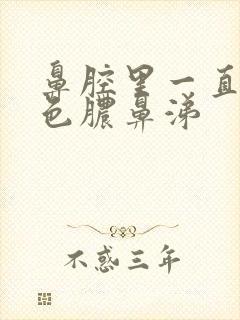 鼻腔里一直
色脓鼻涕
不惑三年